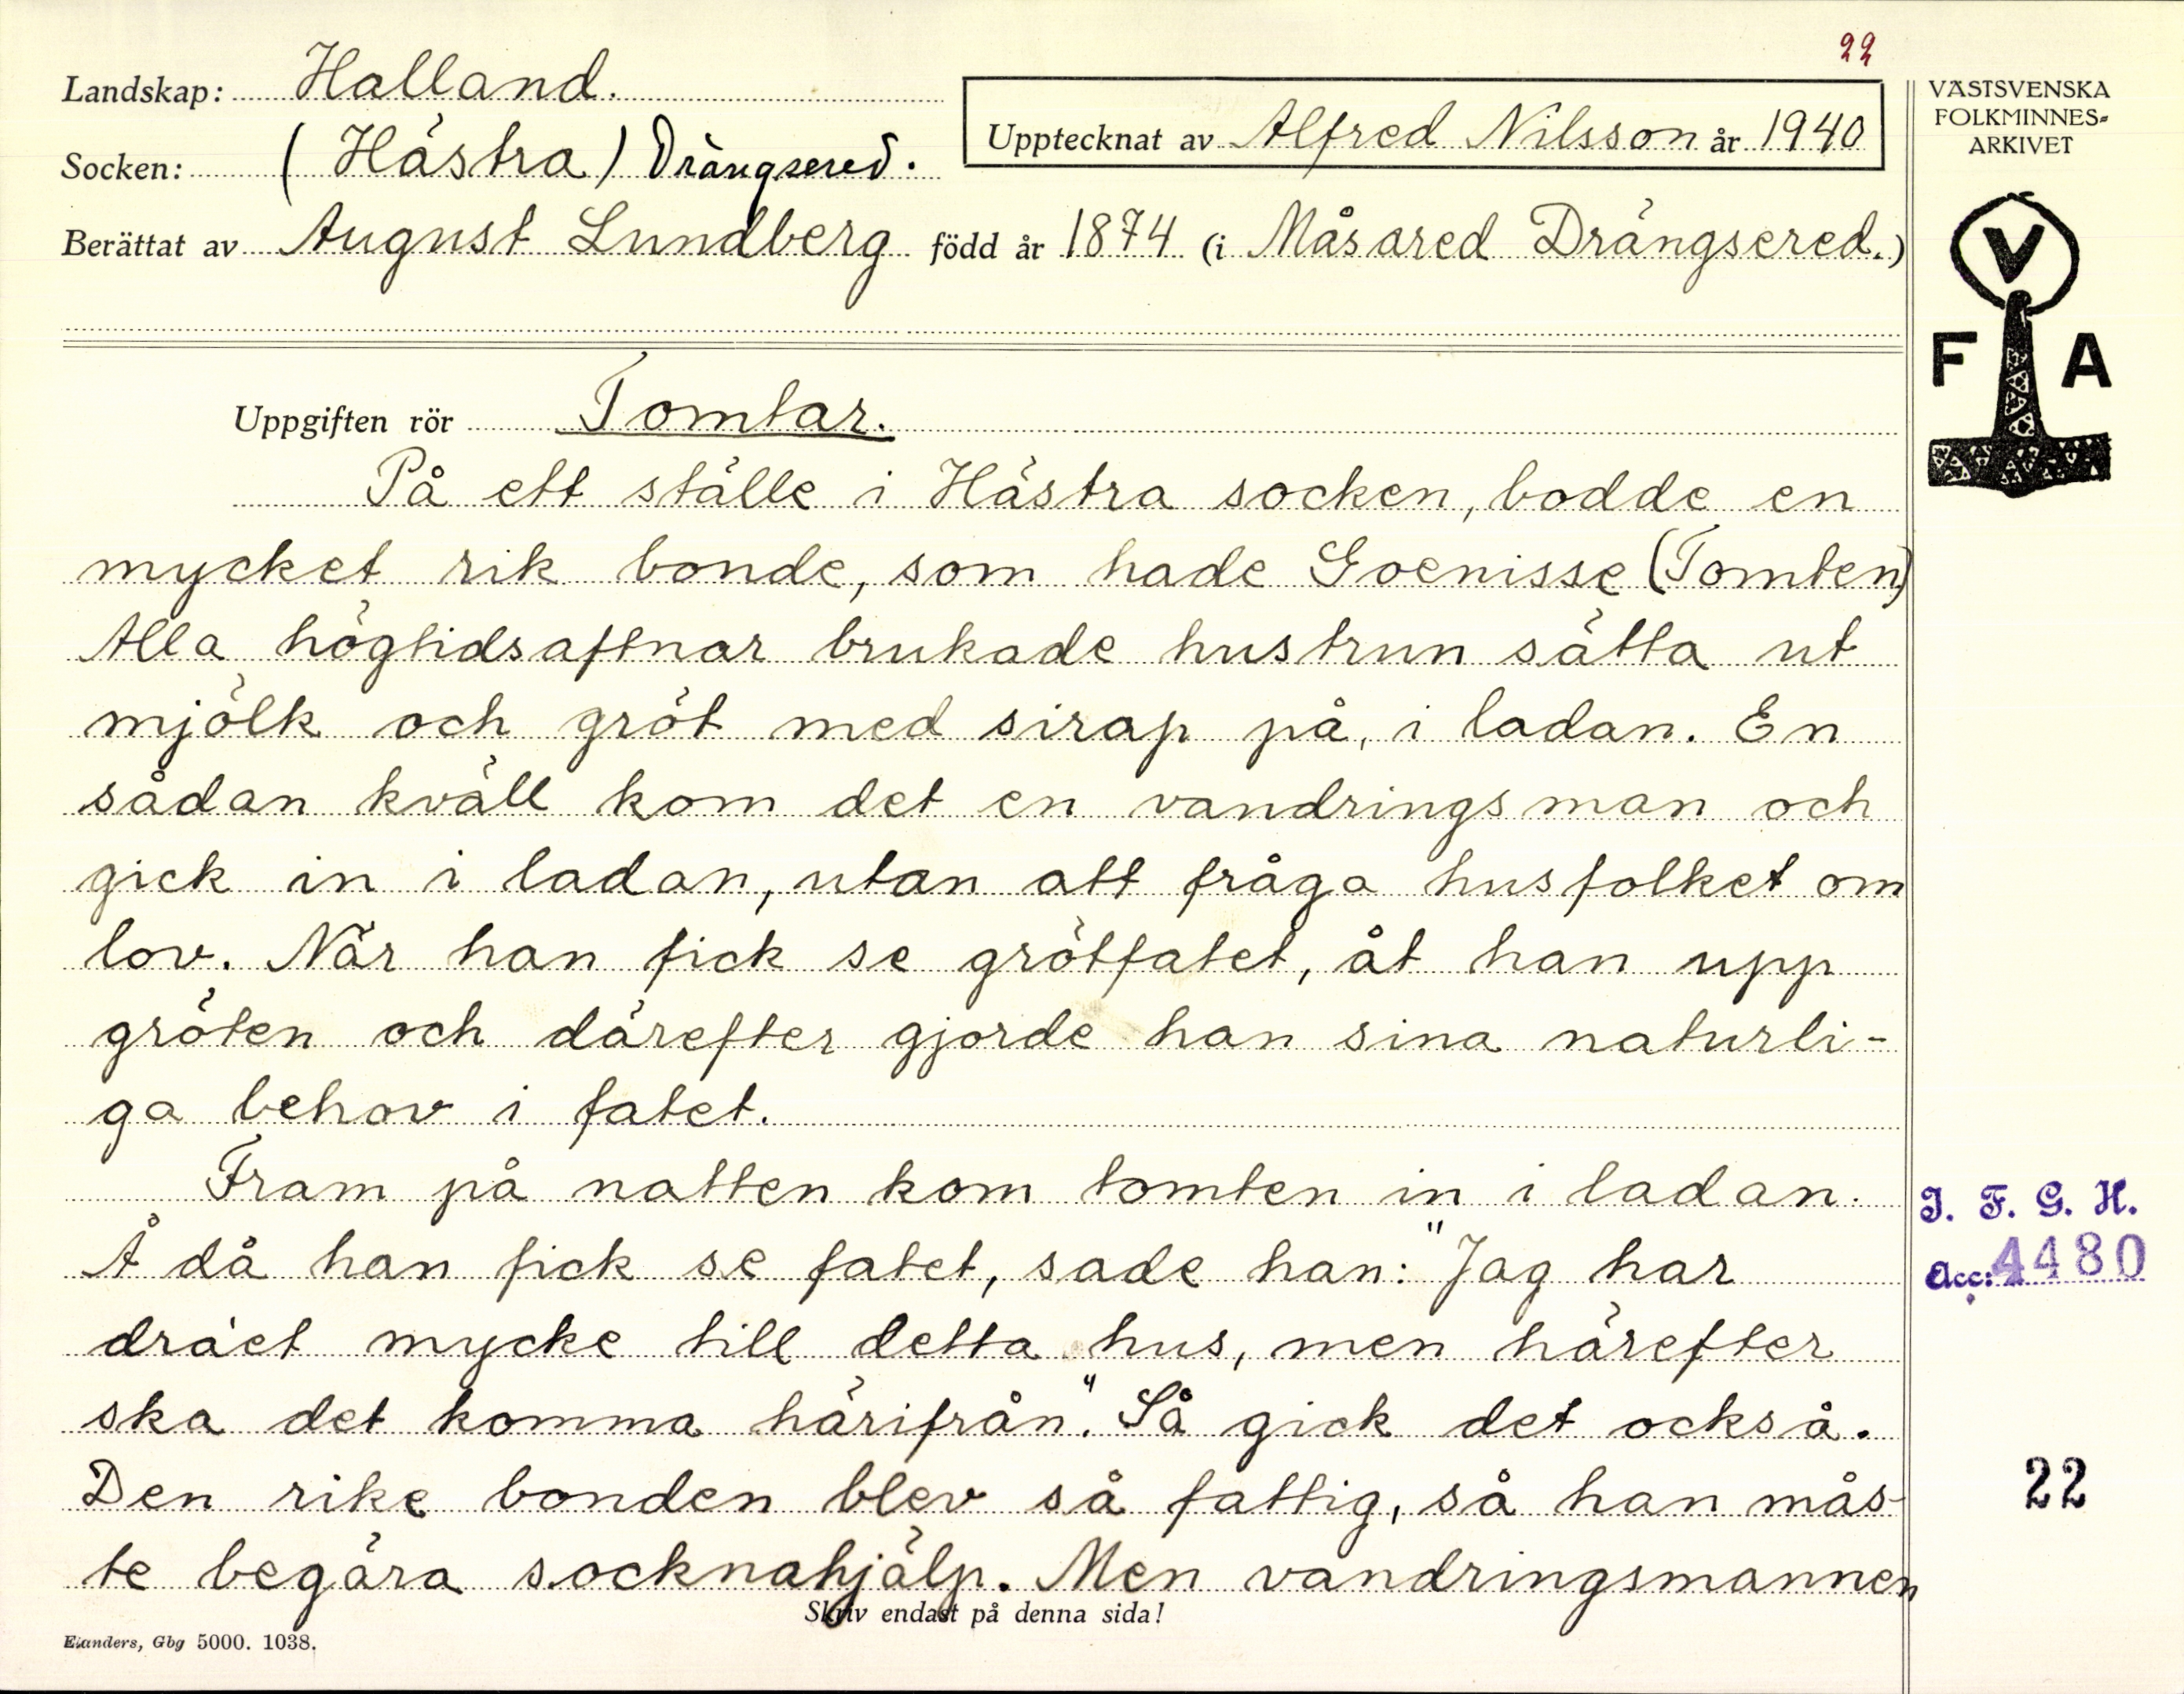 22
Landskap: Halland.
Socken: (Hästra) Drängsered.
Upptecknat av Alfred Nilsson år 1940
Berättat av August Lundberg född år 1874 (i Måsared Drängsered.)
VÄSTSVENSKA
FOLKMINNES-
ARKIVET
V
F A
Uppgiften rör Tomtar.
På ett ställe i Hästra socken, bodde en
mycket rik bonde, som hade Goenisse (Tomten)
Alla högtidsaftnar brukade hustrun sätta ut
mjölk och gröt med sirap på, i ladan. En
sådan kväll kom det en vandringsman och
gick in i ladan, utan att fråga husfolket om
lov. När han fick se grötfatet, åt han upp
gröten och därefter gjorde han sina naturli-
ga behov i fatet.
Fram på natten kom tomten in i ladan.
Å då han fick se fatet, sade han: "Jag har
dräet mycke till detta hus, men härefter
ska det komma härifrån". Så gick det också.
Den rike bonden blev så fattig, så han mås-
te begära socknahjälp. Men vandringsmannen
Skriv endast på denna sida!
Elanders, Gbg 5000. 1038.
I. F. G. H.
Acc: 4480
22